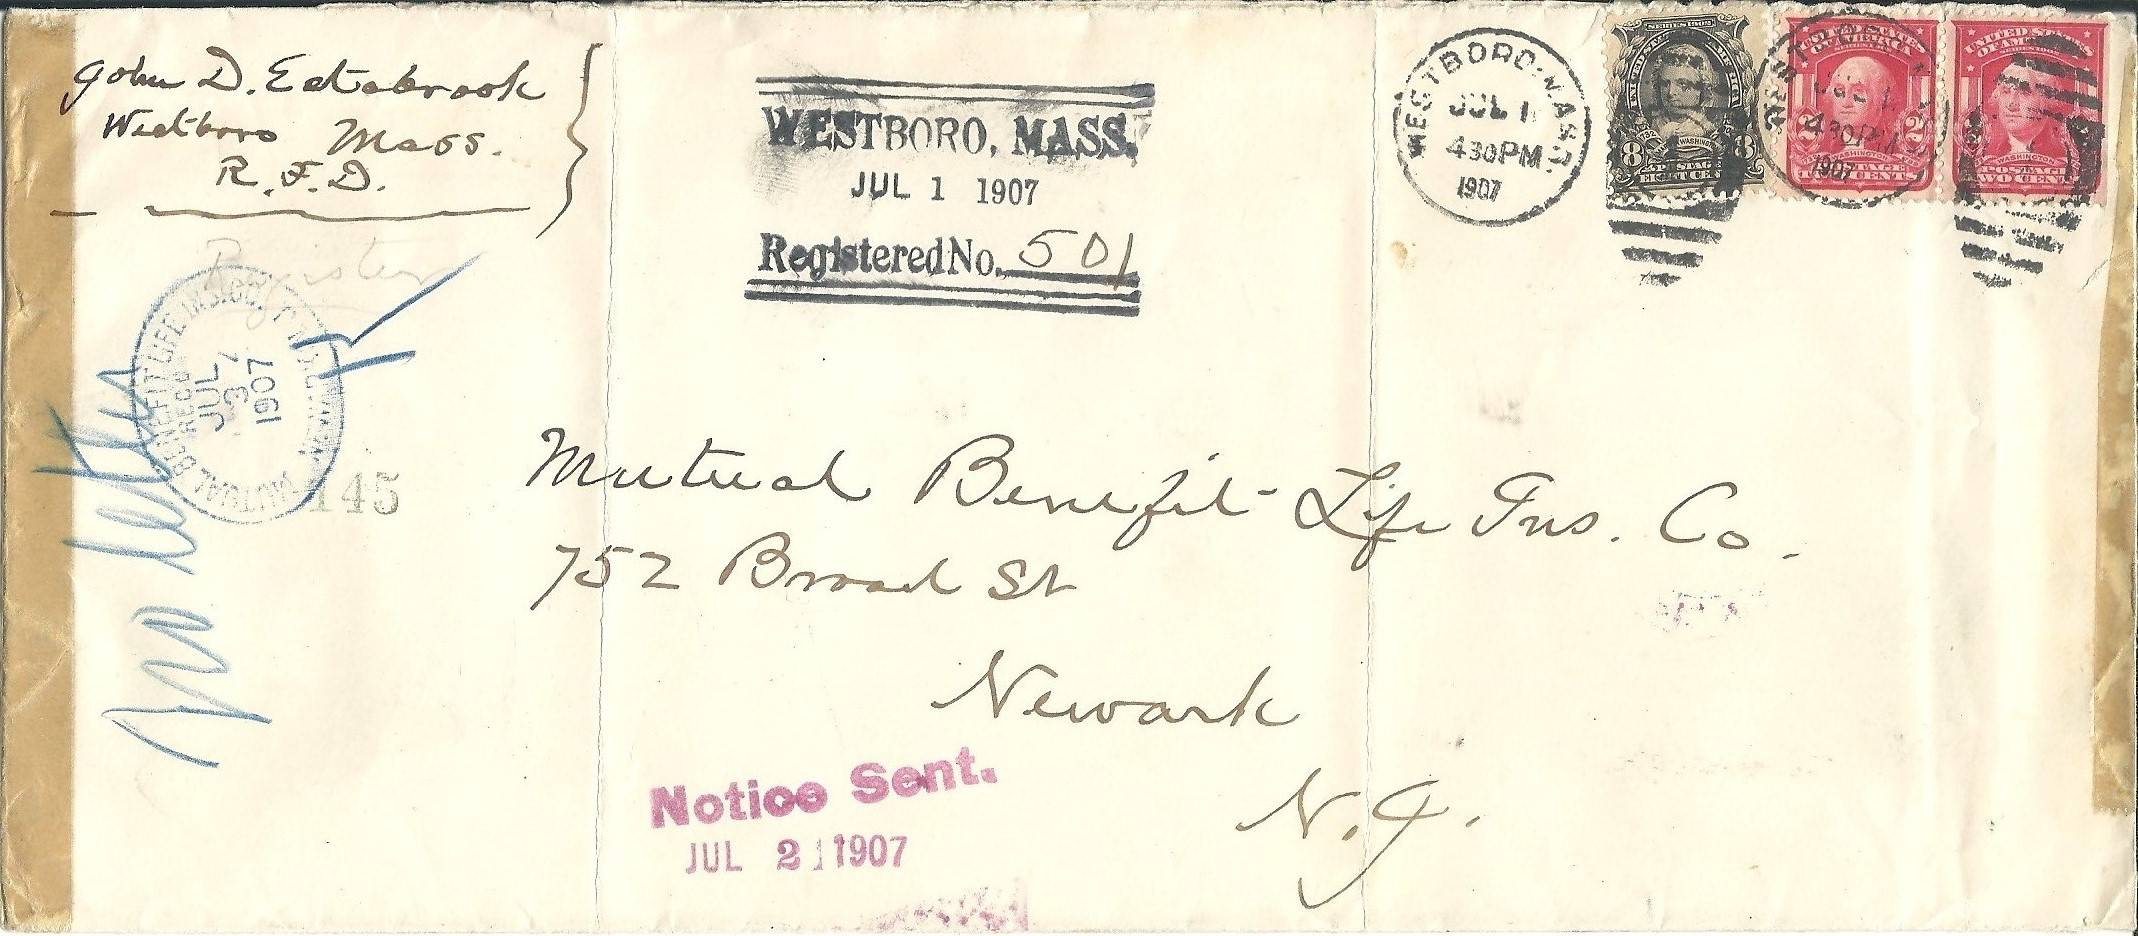 John D. Estabrook
Westboro Mass.
R.F.D.
WESTBORO, MASS.
JUL 1 1907
Registered No. 501
WESTBORO, MASS.
JUL 1
430PM
1907
SERIES 1902
8 8
WASHINGTON
POSTAGE
EIGHT CENTS
WESTBORO
JUL 1
430PM
1907
UNITED STATES
OF AMERICA
2 2
WASHINGTON
POSTAGE
TWO CENTS
UNITED STATES
OF AMERICA
WASHINGTON
POSTAGE
TWO CENTS
Register
MUTUAL BENEFIT LIFE INS. CO. NEWARK
REC'D
JUL 3
1907
no letter
145
Mutual Benefit Life Ins. Co.
752 Broad St
Newark
N.J.
Notice Sent.
JUL 2 1907